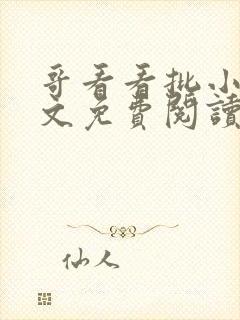 哥看看批小
文免費閱讀
仙人